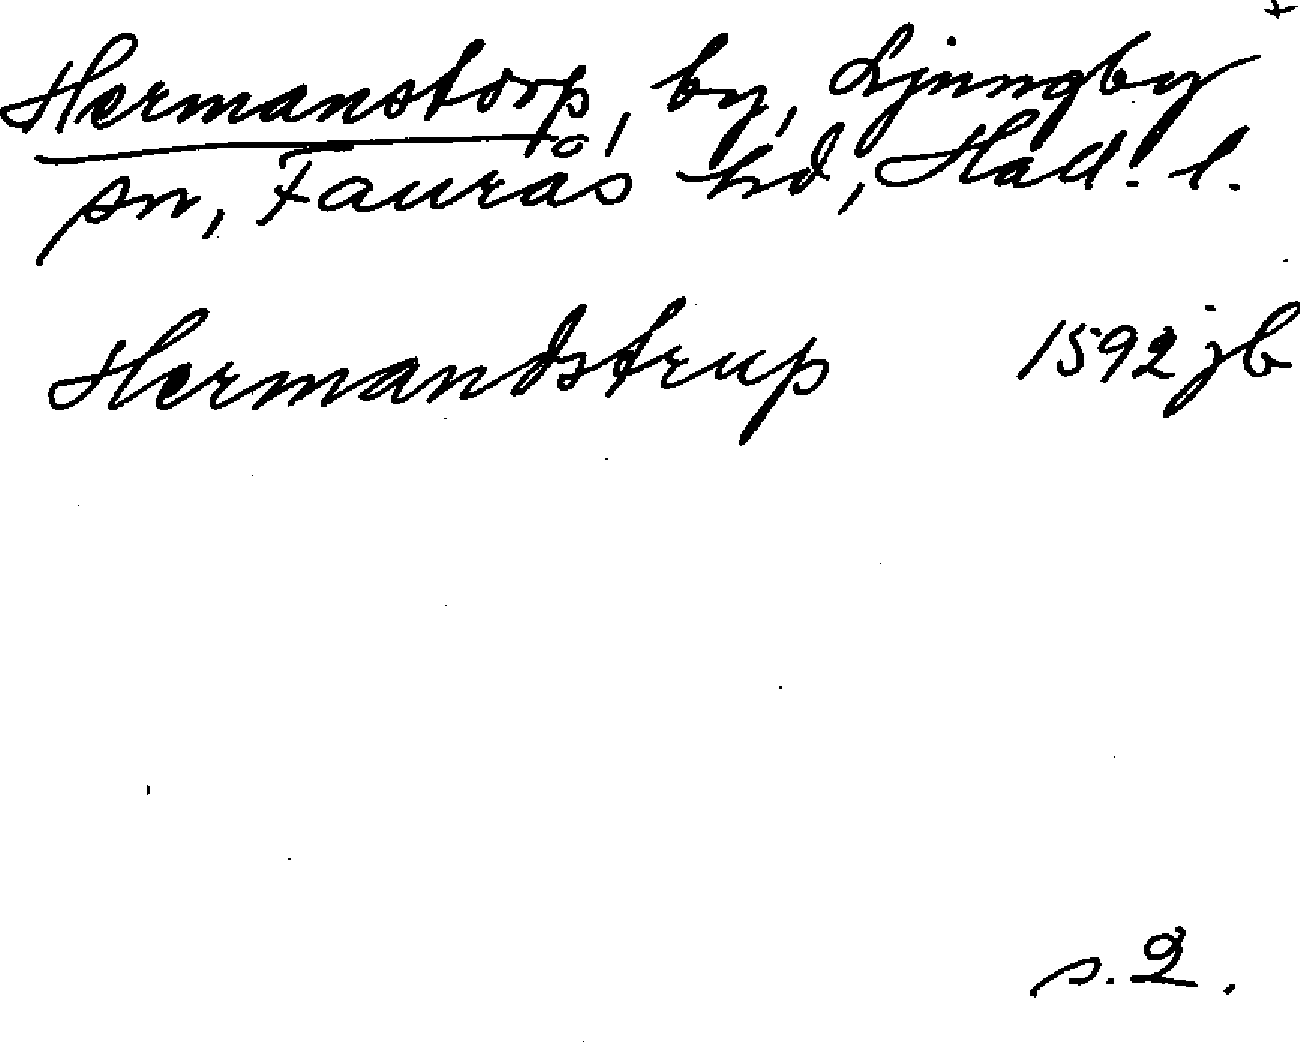 +
Hermanstorp, by, Ljungby
sn, Faurås hd, Hall. l.
Hermandstrup 1592 jb
s. 2.